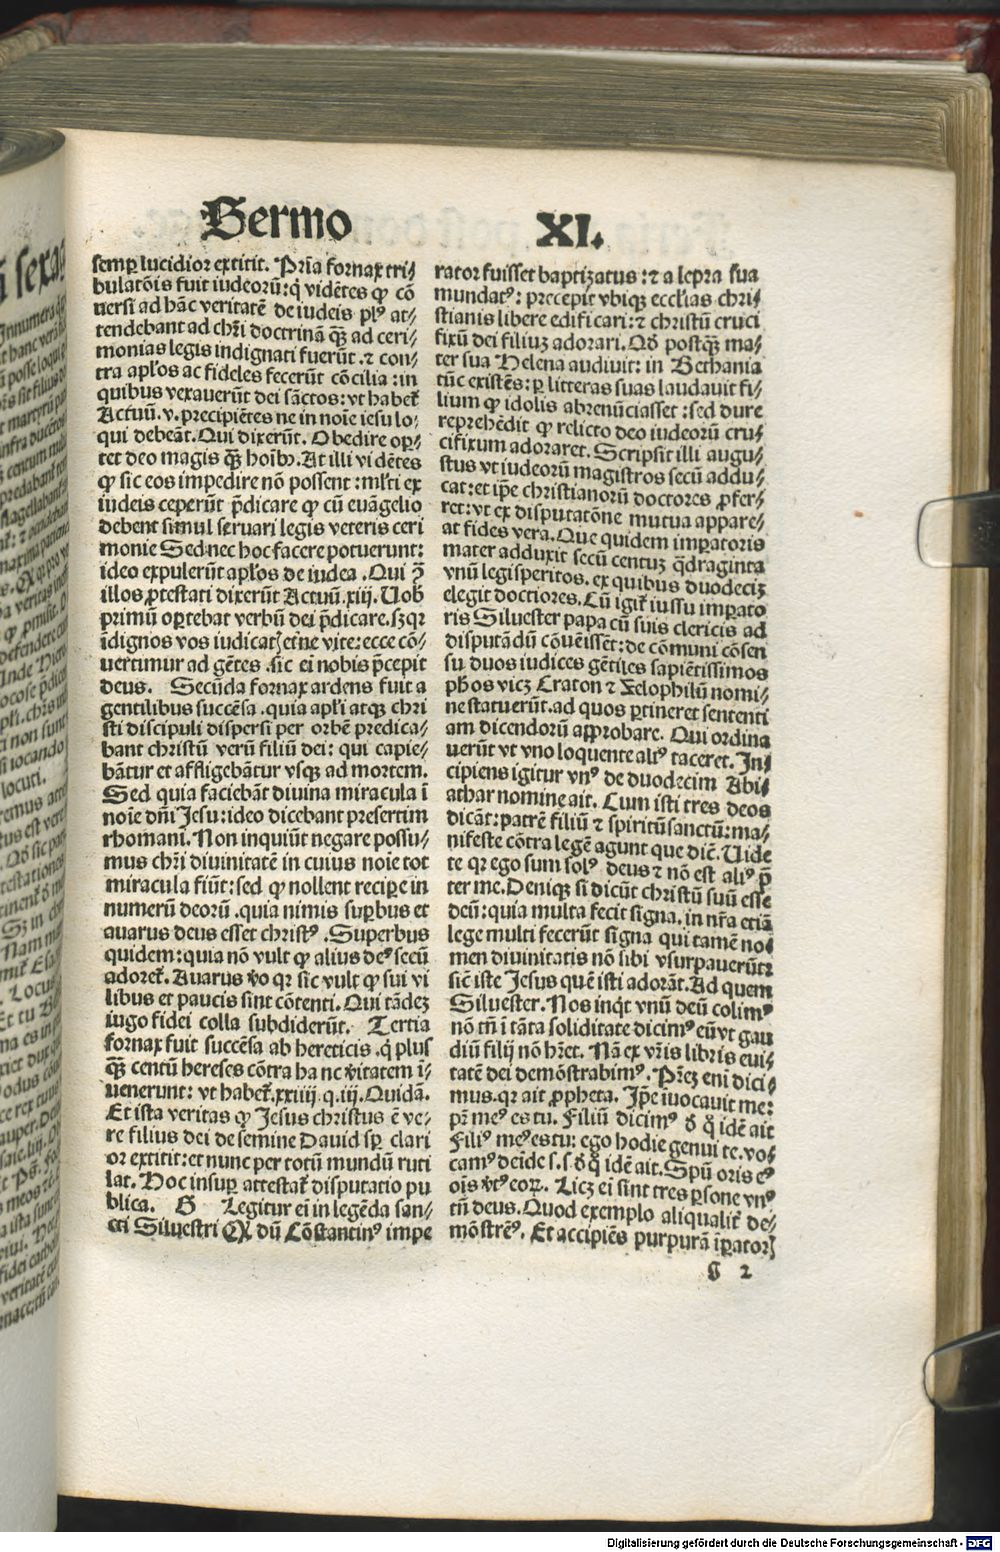 Sermo XI.
semꝑ lucidior extitit. Pꝛĩa fornax tri⸗
bulatõis fuit iudeoꝛũ: q̇ vidẽtes ꝙ cõ
uersi ad hãc veritatẽ de iudeis plꝰ at⸗
tendebant ad chꝛ̃i doctrinã q̃ꝫ ad ceri⸗
monias legis indignati fuerũt. ⁊ con⸗
tra apl̓os ac fideles fecerũt cõcilia: in
quibus vexauerũt dei sãctos: vt habet̃
Actuũ. v. precipiẽtes ne in noĩe iesu lo⸗
qui debeãt. Qui dixerũt. Obedire opꝛ⸗
tet deo magis q̃ꝫ hoĩbꝰ. At illi vidẽtes
ꝙ sic eos impedire nõ possent: ml̓ti ex
iudeis ceperũt p̃dicare ꝙ cũ euãgelio
debent simul seruari legis veteris ceri
monie Sed nec hoc facere potuerunt:
ideo expulerũt apl̓os de iudea. Qui ꝯ̃
illos ꝓtestati dixerũt Actuũ. xiij. Uob̃
primũ opꝛtebat verbũ dei p̃dicare. sꝫ qꝛ
ĩdignos vos iudicatꝭ et̃ne vite: ecce cõ⸗
uertimur ad gẽtes. sic ei nobis p̃cepit
deus. Secũda fornax ardens fuit a
gentilibus succẽsa. quia apl̓i atqꝫ chꝛi
sti discipuli dispersi per orbẽ predica⸗
bant christũ verũ filiũ dei: qui capie⸗
bãtur et affligebãtur vsqꝫ ad mortem.
Sed quia faciebãt diuina miracula ĩ
noĩe dñi Jesu: ideo dicebant presertim
rhomani. Non inquiũt negare possu⸗
mus chꝛ̃i diuinitatẽ in cuius noĩe tot
miracula fiũt: sed ꝙ nollent recipe in
numerũ deoꝛũ. quia nimis suꝑbus et
auarus deus esset christꝰ. Superbus
quidem: quia nõ vult ꝙ alius deꝰ secũ
adoret̃. Auarus v̓o qꝛ sic vult ꝙ sui vi
libus et paucis sint cõtenti. Qui tãdeꝫ
iugo fidei colla subdiderũt. Tertia
fornax fuit succẽsa ab hereticis. q̇ plus
q̃ꝫ centũ hereses cõtra hanc v̓itatem ĩ⸗
uenerunt: vt habet̃. xxiiij. q. iij. Quidã.
Et ista veritas ꝙ Jesus christus ẽ ve⸗
re filius dei de semine Dauid sꝑ clari
or extitit: et nunc per totũ mundũ ruti
lat. Hoc insuꝑ attestat̃ disputatio pu
blica. G Legitur ei in legẽda san⸗
cti Siluestri Qꝛ dũ Cõstantinꝰ impe
rator fuisset baptizatus: ⁊ a lepra sua
mundatꝰ: precepit vbiqꝫ eccl̓ias chri⸗
stianis libere edificari: ⁊ christũ cruci
fixũ dei filiuꝫ adorari. Qđ postq̃ꝫ ma⸗
ter sua Helena audiuit: in Bethania
tũc existẽs: ꝑ litteras suas laudauit fi⸗
lium ꝙ idolis abrenũciasset: sed dure
reprehẽdit ꝙ relicto deo iudeoꝛũ cru⸗
cifixum adoraret. Scripsit illi augu⸗
stus vt iudeoꝛũ magistros secũ addu⸗
cat: et ip̃e christianoꝛũ doctores ꝓfer⸗
ret: vt ex disputatõne mutua appare⸗
at fides vera. Que quidem imꝑatoris
mater adduxit secũ centuꝫ q̃draginta
vnũ legisperitos. ex quibus duodeciꝫ
elegit doctiores. Cũ igit̃ iussu imꝑato
ris Siluester papa cũ suis clericis ad
disputãdũ cõuẽissẽt: de cõmuni cõsen
su duos iudices gẽtiles sapiẽtissimos
pħos vicꝫ Craton ⁊ Zelophilũ nomi⸗
ne statuerũt. ad quos ꝑtineret sententi
am dicendoꝛũ aꝓbare. Qui ordina
uerũt vt vno loquente aliꝰ taceret. In⸗
cipiens igitur vnꝰ de duodecim Abi⸗
athar nomine ait. Cum isti tres deos
dicãt: patrẽ filiũ ⁊ spiritũ sanctũ: ma⸗
nifeste cõtra legẽ agunt que dič. Uide
te qꝛ ego sum solꝰ deus ⁊ nõ est aliꝰ p̃
ter me. Deniqꝫ si dicũt christũ suũ esse
deũ: quia multa fecit signa. in nr̃a etiã
lege multi fecerũt signa qui tamẽ no⸗
men diuinitatis nõ sibi vsurpauerũt:
sic iste Jesus quẽ isti adorãt. Ad quem
Siluester. Nos inqͥt vnũ deũ colimꝰ
nõ tñ ĩ tãta soliditate dicimꝰ eũ vt gau
diũ filij nõ hr̃et. Nã ex vr̃is libris eui⸗
tatẽ dei demõstrabimꝰ. Pr̃eꝫ eni dici⸗
mus. qꝛ ait ꝓpheta. Ip̃e iuocauit me:
pr̃ meꝰ es tu. Filiũ dicimꝰ đ q̊ idẽ ait
Filiꝰ meꝰ es tu: ego hodie genui te. vo⸗
camꝰ deĩde s.s. đ q̊ idẽ ait. Spũ oris eꝰ
oĩs v̓tꝰ eoꝝ. Licꝫ ei sint tres ꝑsone vnꝰ
tñ deus. Quod exemplo aliqualit̃ de⸗
mõstreꝰ. Et accipiẽs purpurã iꝑatoꝛꝭ
g 2
Digitalisierung gefördert durch die Deutsche Forschungsgemeinschaft - DFG